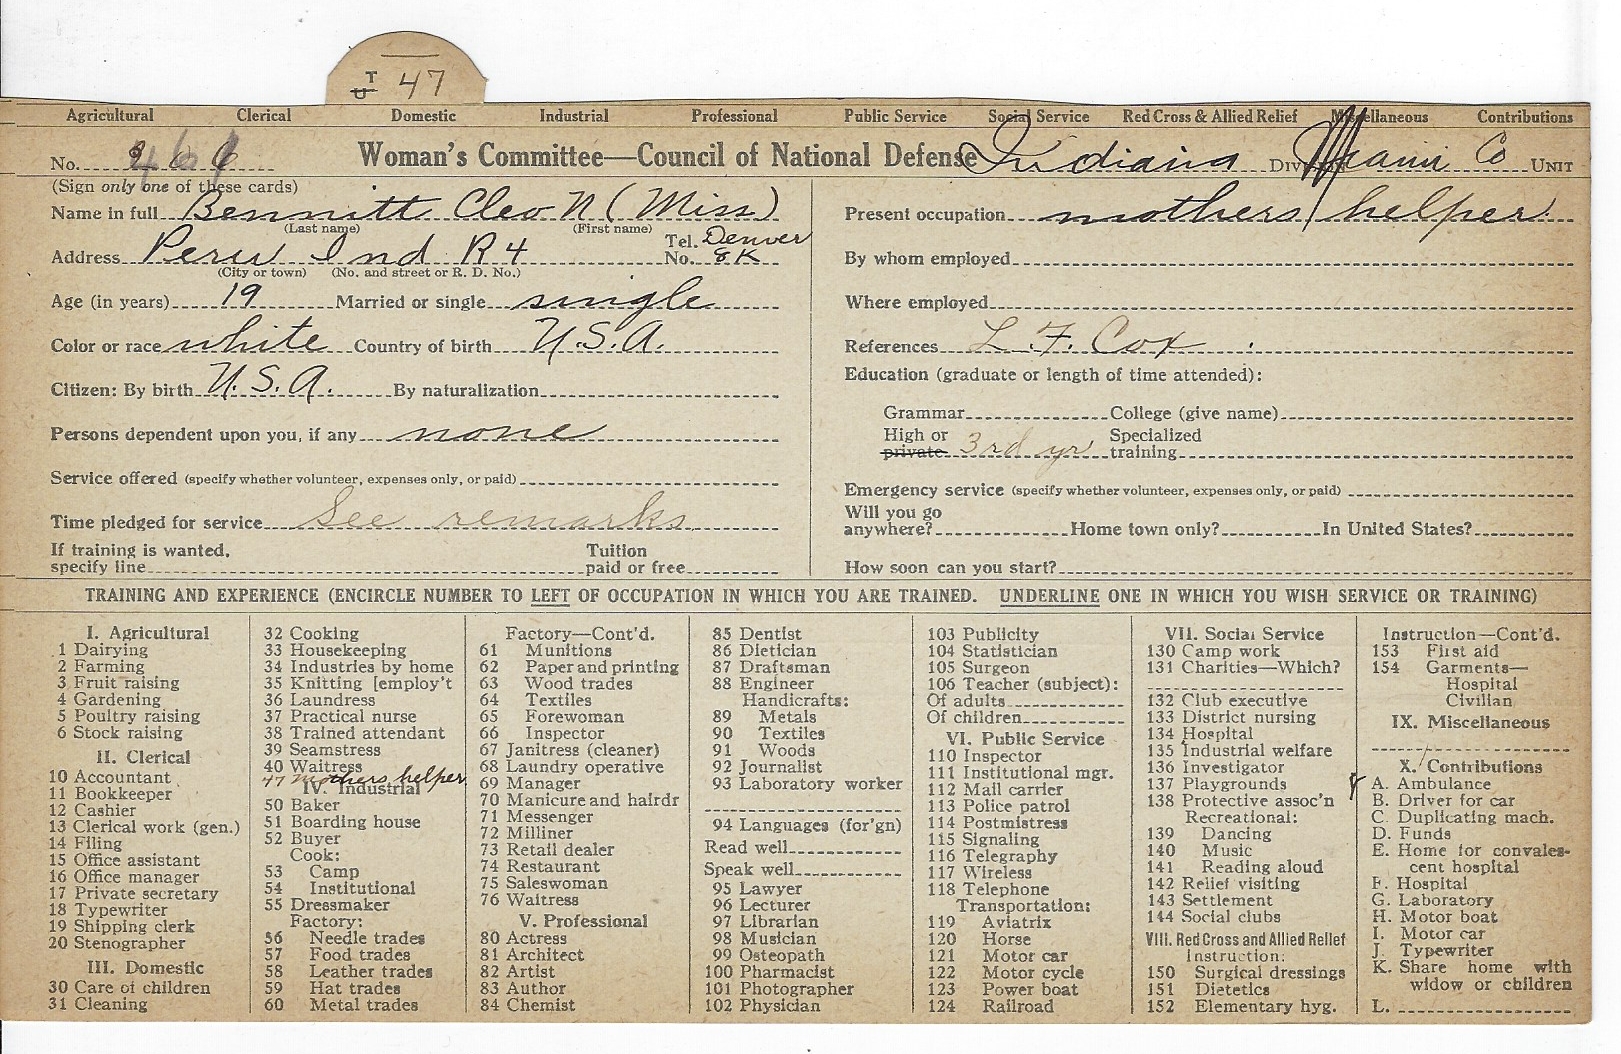 T
U 47
Agricultural Clerical Domestic Industrial Professional Public Service Social Service Red Cross & Allied Relief Miscellaneous Contributions
No. Woman's Committee—Council of National Defense Indiana Division Miami Co Unit
(Sign only one of these cards)
Name in full Bennitt Cleo N (Miss)
(Last name) (First name)
Address Peru Ind R 4 Tel. No. Denver 8K
(City or town) (No. and street or R. D. No.)
Age (in years) 19 Married or single single
Color or race white Country of birth U.S.A.
Citizen: By birth U.S.A. By naturalization
Persons dependent upon you, if any none
Service offered (specify whether volunteer, expenses only, or paid)
Time pledged for service See remarks
If training is wanted, specify line Tuition paid or free
Present occupation mothers helper
By whom employed
Where employed
References L. F. Cox
Education (graduate or length of time attended):
Grammar College (give name)
High or private 3rd yr Specialized training
Emergency service (specify whether volunteer, expenses only, or paid)
Will you go anywhere? Home town only? In United States?
How soon can you start?
TRAINING AND EXPERIENCE (ENCIRCLE NUMBER TO LEFT OF OCCUPATION IN WHICH YOU ARE TRAINED. UNDERLINE ONE IN WHICH YOU WISH SERVICE OR TRAINING)
I. Agricultural
1 Dairying
2 Farming
3 Fruit raising
4 Gardening
5 Poultry raising
6 Stock raising
II. Clerical
10 Accountant
11 Bookkeeper
12 Cashier
13 Clerical work (gen.)
14 Filing
15 Office assistant
16 Office manager
17 Private secretary
18 Typewriter
19 Shipping clerk
20 Stenographer
III. Domestic
30 Care of children
31 Cleaning
32 Cooking
33 Housekeeping
34 Industries by home
35 Knitting [employ't
36 Laundress
37 Practical nurse
38 Trained attendant
39 Seamstress
40 Waitress
47 mothers helper
IV. Industrial
50 Baker
51 Boarding house
52 Buyer
Cook:
53 Camp
54 Institutional
55 Dressmaker
Factory:
56 Needle trades
57 Food trades
58 Leather trades
59 Hat trades
60 Metal trades
Factory—Cont'd.
61 Munitions
62 Paper and printing
63 Wood trades
64 Textiles
65 Forewoman
66 Inspector
67 Janitress (cleaner)
68 Laundry operative
69 Manager
70 Manicure and hairdr
71 Messenger
72 Milliner
73 Retail dealer
74 Restaurant
75 Saleswoman
76 Waitress
V. Professional
80 Actress
81 Architect
82 Artist
83 Author
84 Chemist
85 Dentist
86 Dietician
87 Draftsman
88 Engineer
Handicrafts:
89 Metals
90 Textiles
91 Woods
92 Journalist
93 Laboratory worker
94 Languages (for'gn)
Read well
Speak well
95 Lawyer
96 Lecturer
97 Librarian
98 Musician
99 Osteopath
100 Pharmacist
101 Photographer
102 Physician
103 Publicity
104 Statistician
105 Surgeon
106 Teacher (subject):
Of adults
Of children
VI. Public Service
110 Inspector
111 Institutional mgr.
112 Mail carrier
113 Police patrol
114 Postmistress
115 Signaling
116 Telegraphy
117 Wireless
118 Telephone
Transportation:
119 Aviatrix
120 Horse
121 Motor car
122 Motor cycle
123 Power boat
124 Railroad
VII. Social Service
130 Camp work
131 Charities—Which?
132 Club executive
133 District nursing
134 Hospital
135 Industrial welfare
136 Investigator
137 Playgrounds
138 Protective assoc'n
Recreational:
139 Dancing
140 Music
141 Reading aloud
142 Relief visiting
143 Settlement
144 Social clubs
VIII. Red Cross and Allied Relief
Instruction:
150 Surgical dressings
151 Dietetics
152 Elementary hyg.
Instruction—Cont'd.
153 First aid
154 Garments—
Hospital
Civilian
IX. Miscellaneous
X. Contributions
A. Ambulance
B. Driver for car
C. Duplicating mach.
D. Funds
E. Home for convales-
cent hospital
F. Hospital
G. Laboratory
H. Motor boat
I. Motor car
J. Typewriter
K. Share home with
widow or children
L.